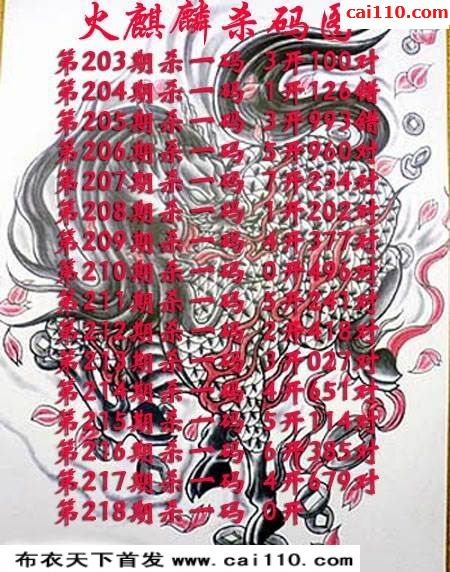 cai110.com
火麒麟杀码图
第203期杀一码 3开100对
第204期杀一码 1开126错
第205期杀一码 3开993错
第206期杀一码 5开960对
第207期杀一码 7开234对
第208期杀一码 1开202对
第209期杀一码 4开377对
第210期杀一码 0开496对
第211期杀一码 5开241对
第212期杀一码 2开418对
第213期杀一码 3开027对
第214期杀一码 4开651对
第215期杀一码 5开114对
第216期杀一码 6开385对
第217期杀一码 4开679对
第218期杀一码 0开
布衣天下首发 www.cai110.com